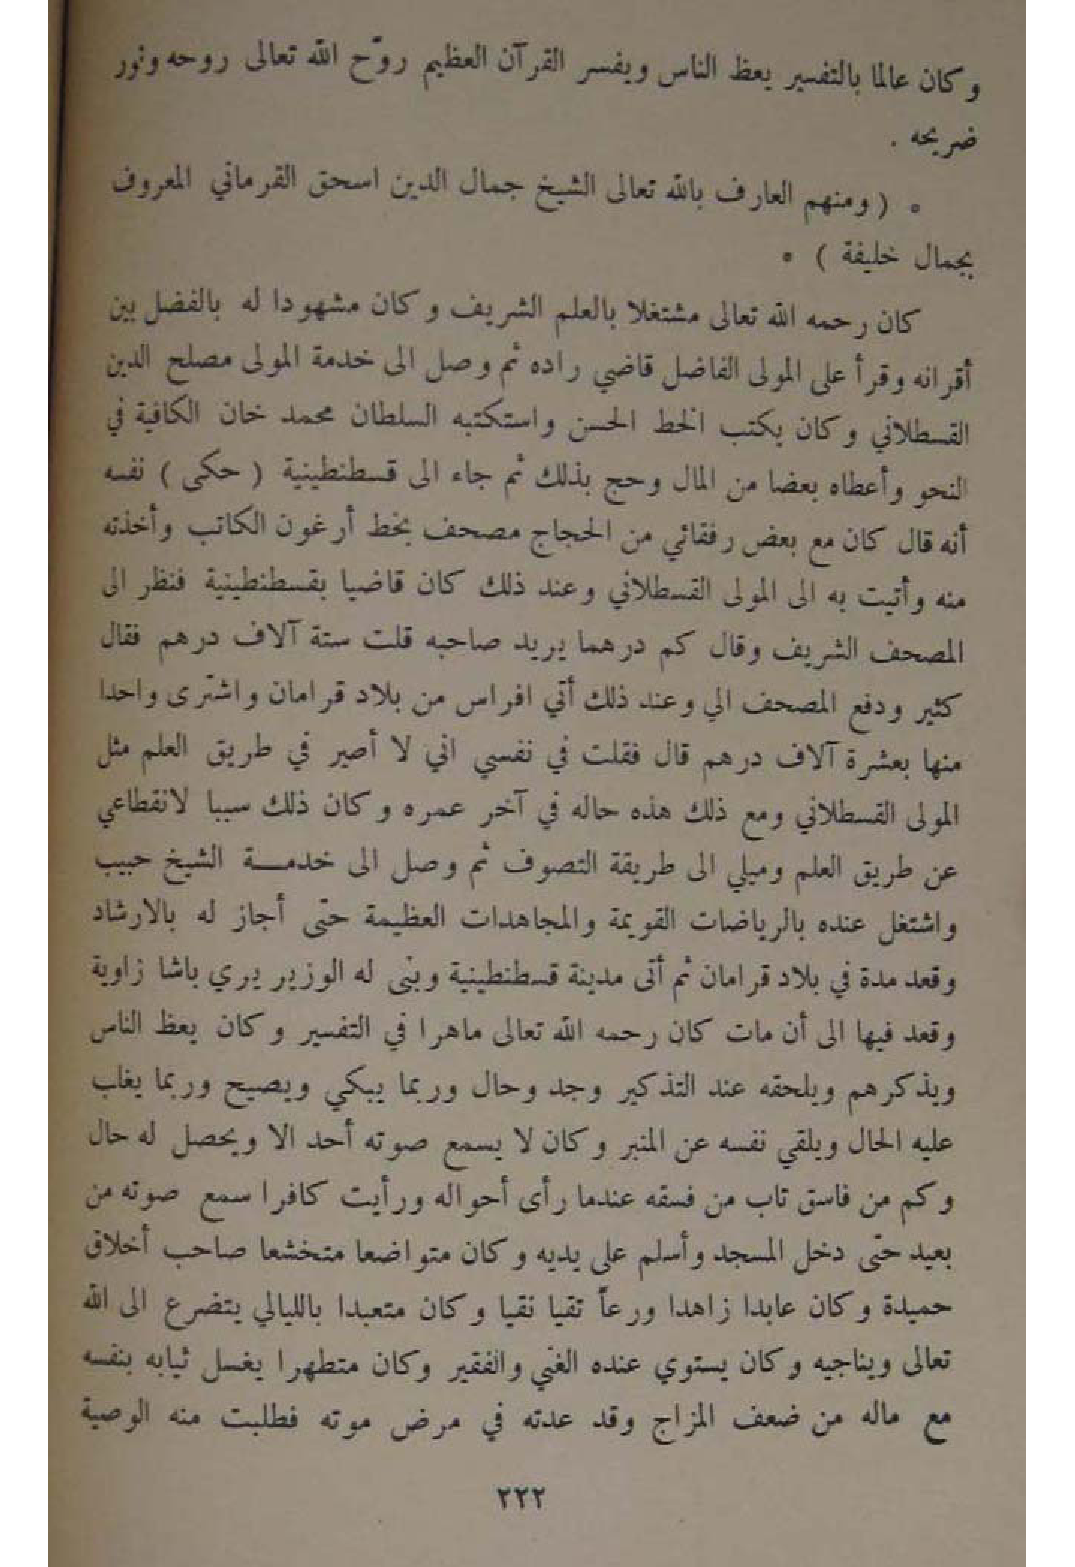 وكان عالما بالتفسير يعظ الناس ويفسر القرآن العظيم روّح الله تعالى روحه ونور
ضريحه .
• ( ومنهم العارف بالله تعالى الشيخ جمال الدين اسحق القرماني المعروف
بجمال خليفة ) •
كان رحمه الله تعالى مشتغلا بالعلم الشريف وكان مشهودا له بالفضل بين
أقرانه وقرأ على المولى الفاضل قاضي راده ثم وصل الى خدمة المولى مصلح الدين
القسطلاني وكان يكتب الخط الحسن واستكتبه السلطان محمد خان الكافية في
النحو وأعطاه بعضا من المال وحج بذلك ثم جاء الى قسطنطينية ( حكى ) نفسه
أنه قال كان مع بعض رفقائي من الحجاج مصحف بخط أرغون الكاتب وأخذته
منه وأتيت به الى المولى القسطلاني وعند ذلك كان قاضيا بقسطنطينية فنظر الى
المصحف الشريف وقال كم درهما يريد صاحبه قلت ستة آلاف درهم فقال
كثير ودفع المصحف الي وعند ذلك أتي افراس من بلاد قرامان واشترى واحدا
منها بعشرة آلاف درهم قال فقلت في نفسي اني لا أصير في طريق العلم مثل
المولى القسطلاني ومع ذلك هذه حاله في آخر عمره وكان ذلك سببا لانقطاعي
عن طريق العلم وميلي الى طريقة التصوف ثم وصل الى خدمـــة الشيخ حبيب
واشتغل عنده بالرياضات القويمة والمجاهدات العظيمة حتى أجاز له بالارشاد
وقعد مدة في بلاد قرامان ثم أتى مدينة قسطنطينية وبنى له الوزير يري باشا زاوية
وقعد فيها الى أن مات كان رحمه الله تعالى ماهرا في التفسير وكان يعظ الناس
ويذكرهم ويلحقه عند التذكير وجد وحال وربما يبكي ويصيح وربما يغلب
عليه الحال ويلقي نفسه عن المنبر وكان لا يسمع صوته أحد الا ويحصل له حال
وكم من فاسق تاب من فسقه عندما رأى أحواله ورأيت كافرا سمع صوته من
بعيد حتى دخل المسجد وأسلم على يديه وكان متواضعا متخشعا صاحب أخلاق
حميدة وكان عابدا زاهدا ورعاً تقيا نقيا وكان متعبدا بالليالي يتضرع الى الله
تعالى ويناجيه وكان يستوي عنده الغني والفقير وكان متطهرا يغسل ثيابه بنفسه
مع ماله من ضعف المزاج وقد عدته في مرض موته فطلبت منه الوصية
٢٢٢